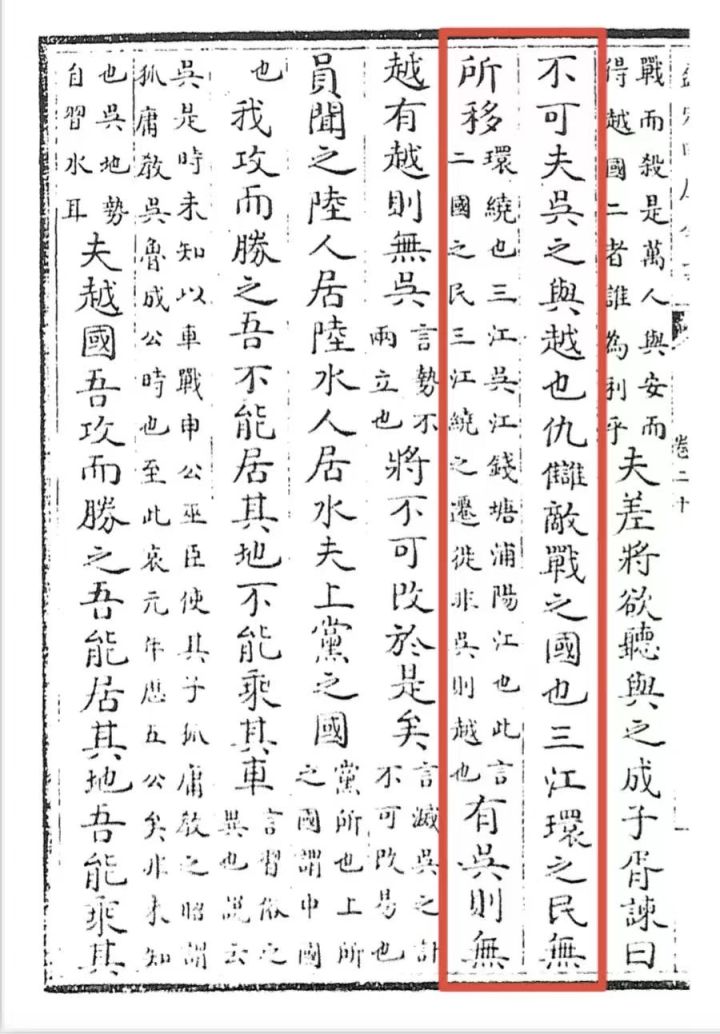 卷二十
戰而殺是萬人與安而
得越國二者誰為利乎
夫差將欲聽與之成子胥諫曰
不可夫吳之與越也仇讎敵戰之國也三江環之民無
所移
環繞也三江吳江錢塘浦陽江也此言
二國之民三江繞之遷徙非吳則越也
有吳則無
越有越則無吳
言勢不
兩立也
將不可改於是矣
言滅吳之計
不可改易也
員聞之陸人居陸水人居水夫上黨之國
黨所也上所
之國謂中國
也
我攻而勝之吾不能居其地不能乘其車
言習俗之
異也説云
吳是時未知以車戰申公巫臣使其子狐庸教之昭謂
狐庸教吳魯成公時也至此哀元年歷五公矣非未知
也吳地勢
自習水耳
夫越國吾攻而勝之吾能居其地吾能乘其